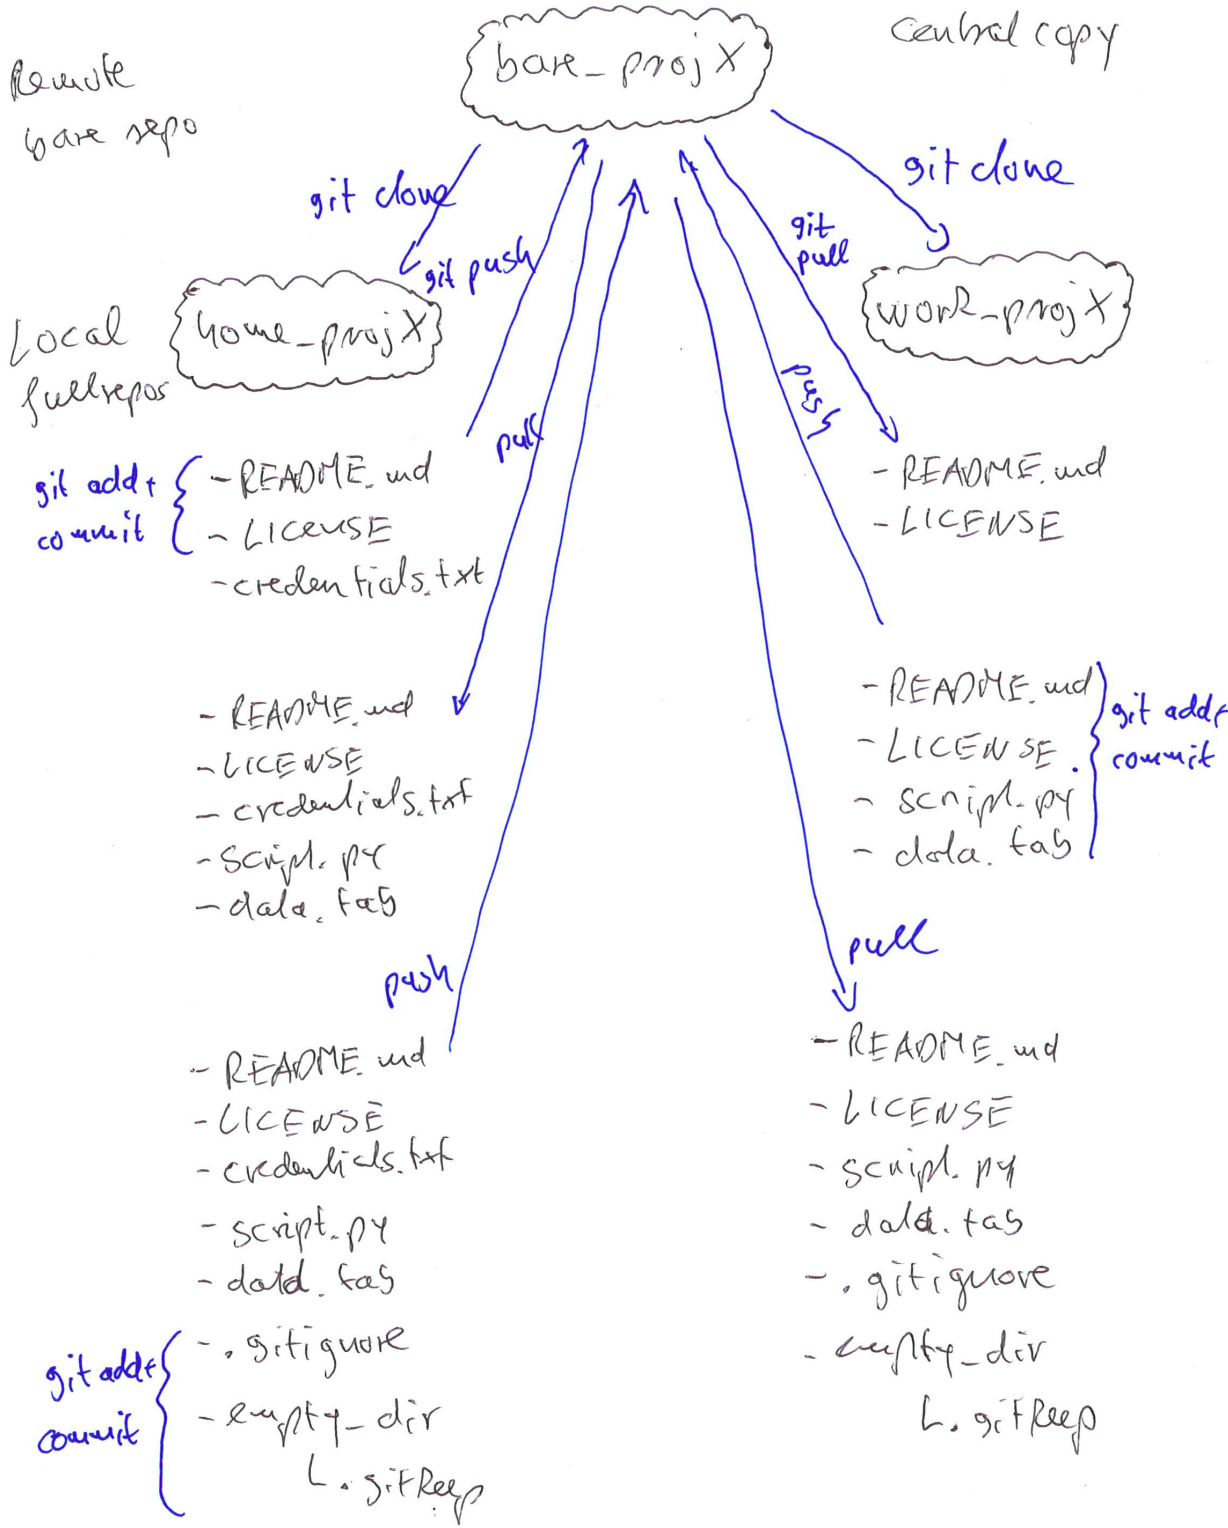 Remote
bare repo
bare_projX
central copy
git clone
git push
git pull
git clone
Local
full repos
home_projX
work_projX
pull
push
git add +
commit
- README.md
- LICENSE
- credentials.txt
- README.md
- LICENSE
- README.md
- LICENSE
- credentials.txt
- script.py
- data.tab
- README.md
- LICENSE
- script.py
- data.tab
git add +
commit
push
pull
- README.md
- LICENSE
- credentials.txt
- script.py
- data.tab
- .gitignore
- empty_dir
L .gitkeep
git add +
commit
- README.md
- LICENSE
- script.py
- data.tab
- .gitignore
- empty_dir
L .gitkeep